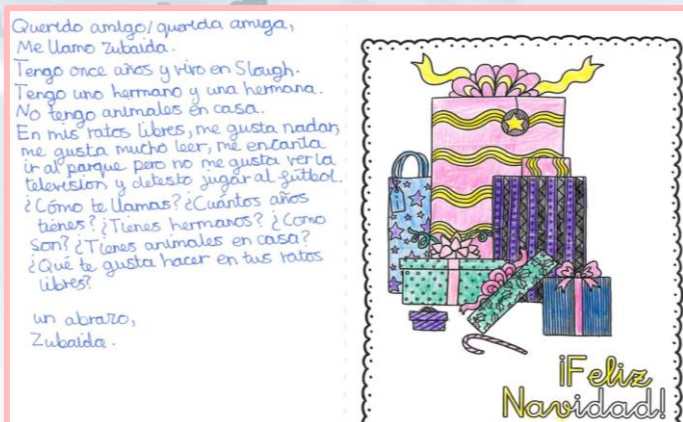 Querido amigo/querida amiga,
Me llamo Zubaida.
Tengo once años y vivo en Slough.
Tengo uno hermano y una hermana.
No tengo animales en casa.
En mis ratos libres, me gusta nadar,
me gusta mucho leer, me encanta
ir al parque pero no me gusta ver la
television y detesto jugar al fútbol.
¿Cómo te llamas? ¿Cuántos años
tienes? ¿Tienes hermanos? ¿Como
son? ¿Tienes animales en casa?
¿Qué te gusta hacer en tus ratos
libres?
un abrazo,
Zubaida.
¡Feliz
Navidad!